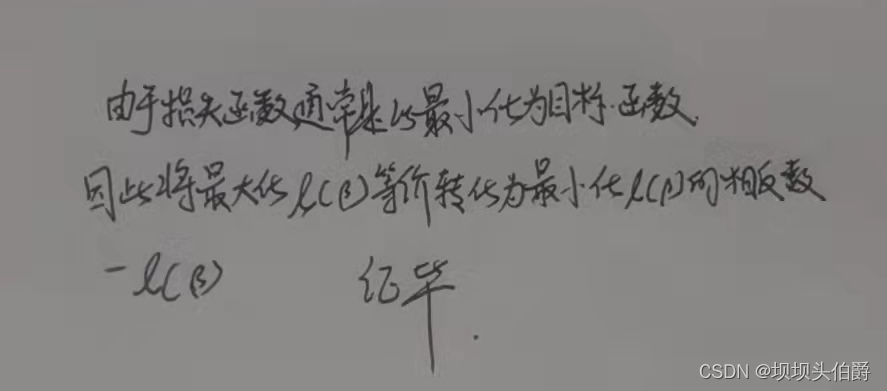 由于损失函数通常是以最小化为目标函数.
因此将最大化 ℓ(β) 等价转化为最小化 ℓ(β) 的相反数
-ℓ(β) 证毕.
CSDN @坝坝头伯爵